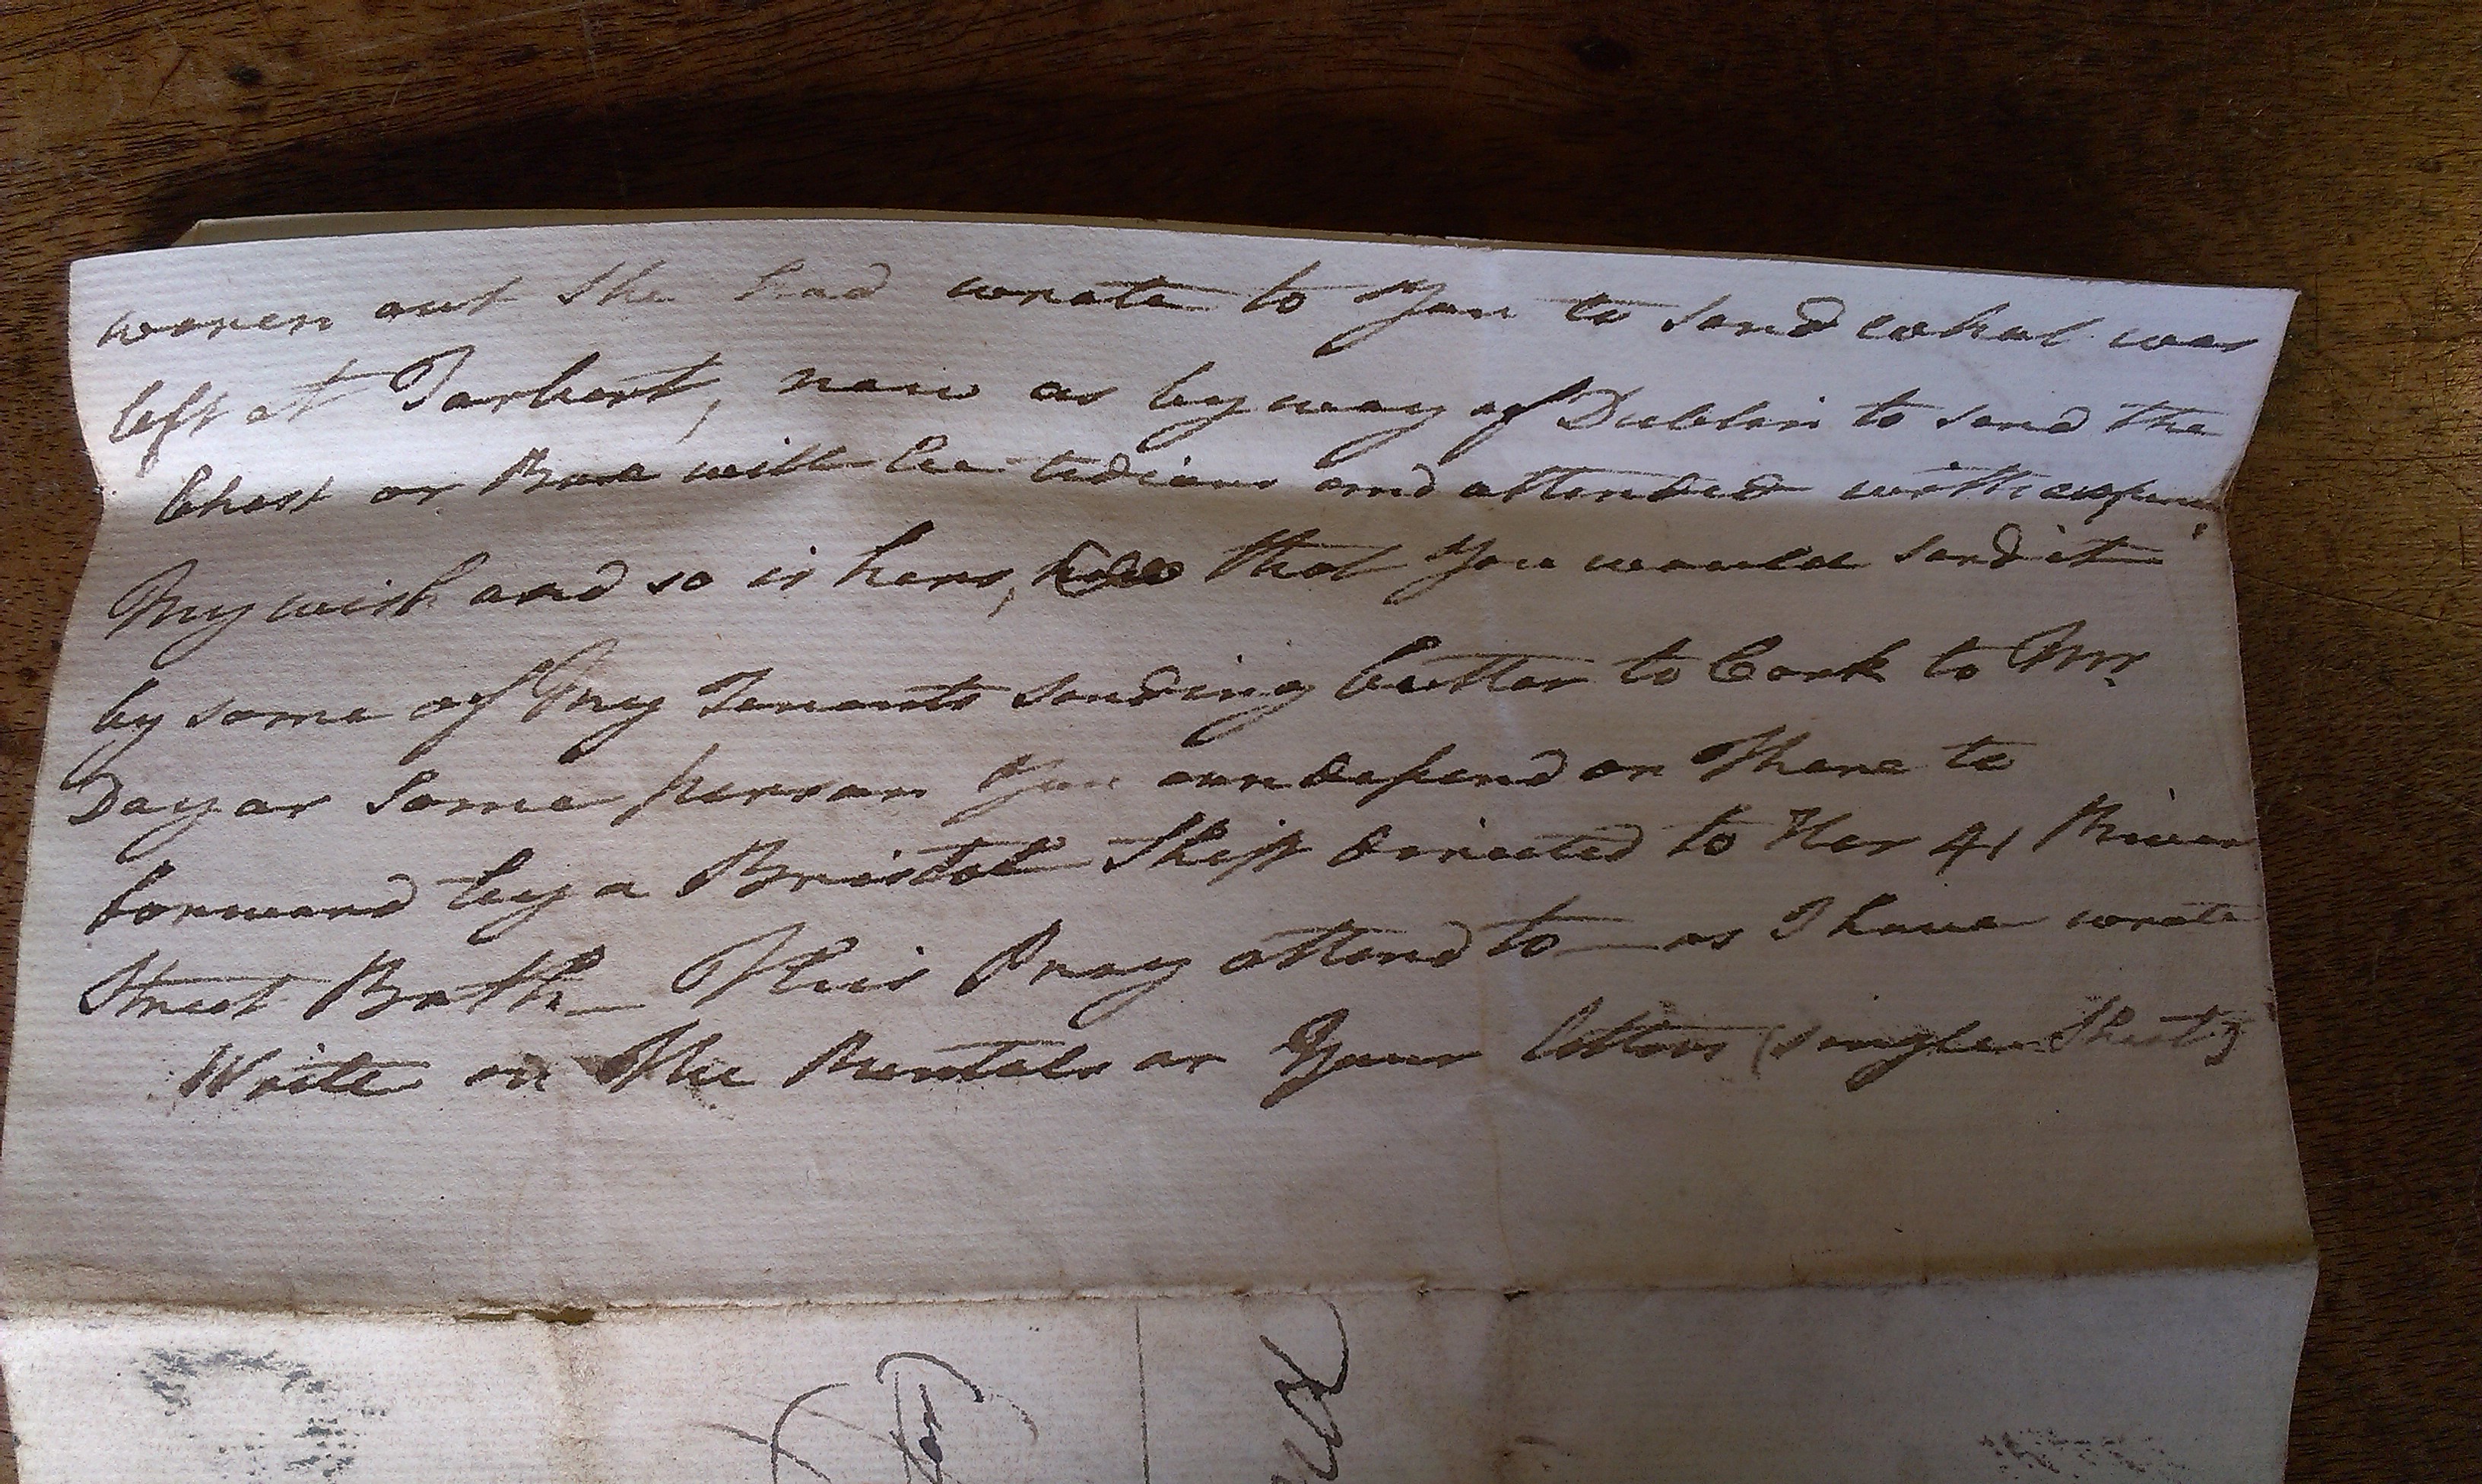 woren out she had wrote to You to send what was
left at Tarbert, now as by way of Dublin to send the
Chest or Box will be tedious and attended with expence
My wish and so is hers, that You would send it
by some of My Tenants sending butter to Cork to Mr.
Day or some person You can depend on There to
forward by a Bristol Ship directed to Her 41 River
Street Bath — This Pray attend to — as I have wrote
Write on The Rentals or Your letters (single Sheet)